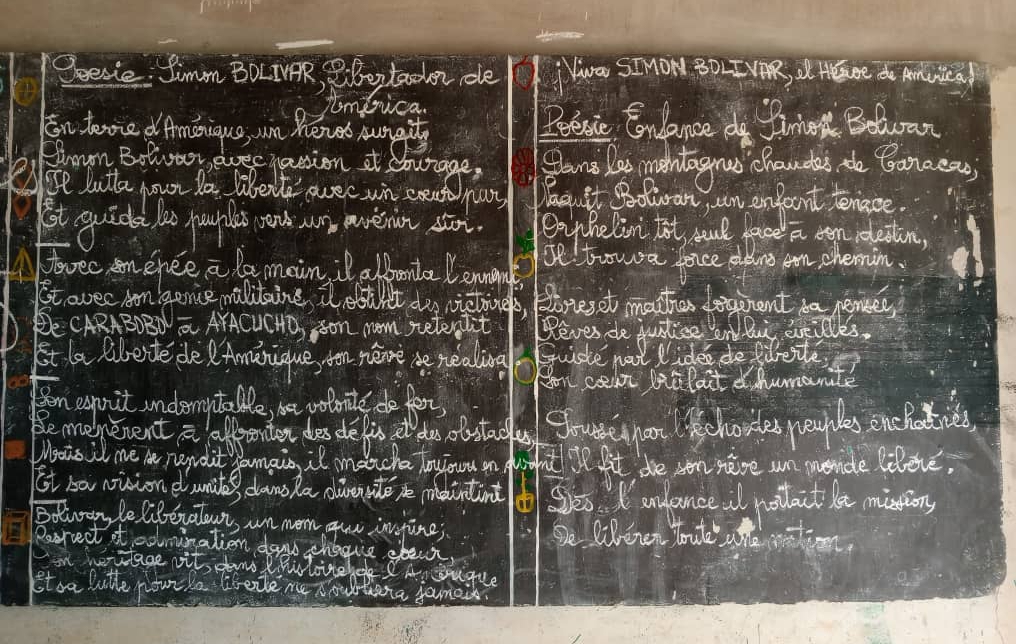 Poesie : Simon BOLIVAR, Libertador de
América.
En terre d'Amérique, un héros surgit,
Simon Bolivar, avec passion et courage.
Il lutta pour la liberté avec un cœur pur,
Et guida les peuples vers un avenir sûr.
Avec son épée à la main, il affronta l'ennemi,
Et avec son genie militaire, il obtint des victoires,
De CARABOBO à AYACUCHO, son nom retentit
Et la liberté de l'Amérique, son rêve se réalisa
Son esprit indomptable, sa volonté de fer,
Le menèrent à affronter des défis et des obstacles,
Mais il ne se rendit jamais, il marcha toujours en avant
Et sa vision d'unité, dans la diversité se maintint
Bolivar, le libérateur, un nom qui inspire;
Respect et admiration dans chaque cœur,
Son héritage vit, dans l'histoire de l'Amérique
Et sa lutte pour la liberté ne s'oubliera jamais.
¡Viva SIMON BOLIVAR, el Héroe de America!
Poésie : Enfance de Simon Bolivar
Dans les montagnes chaudes de Caracas,
Naquit Bolivar, un enfant tenace
Orphelin tôt, seul face à son destin,
Il trouva force dans son chemin.
Livres et maîtres forgèrent sa pensée,
Rêves de justice en lui, éveillés.
Guidé par l'idée de liberté,
Son cœur brûlait d'humanité
Poussé, par l'écho des peuples enchaînés,
Il fit de son rêve un monde libéré.
Dès l'enfance il portait la mission,
De libérer toute une nation.